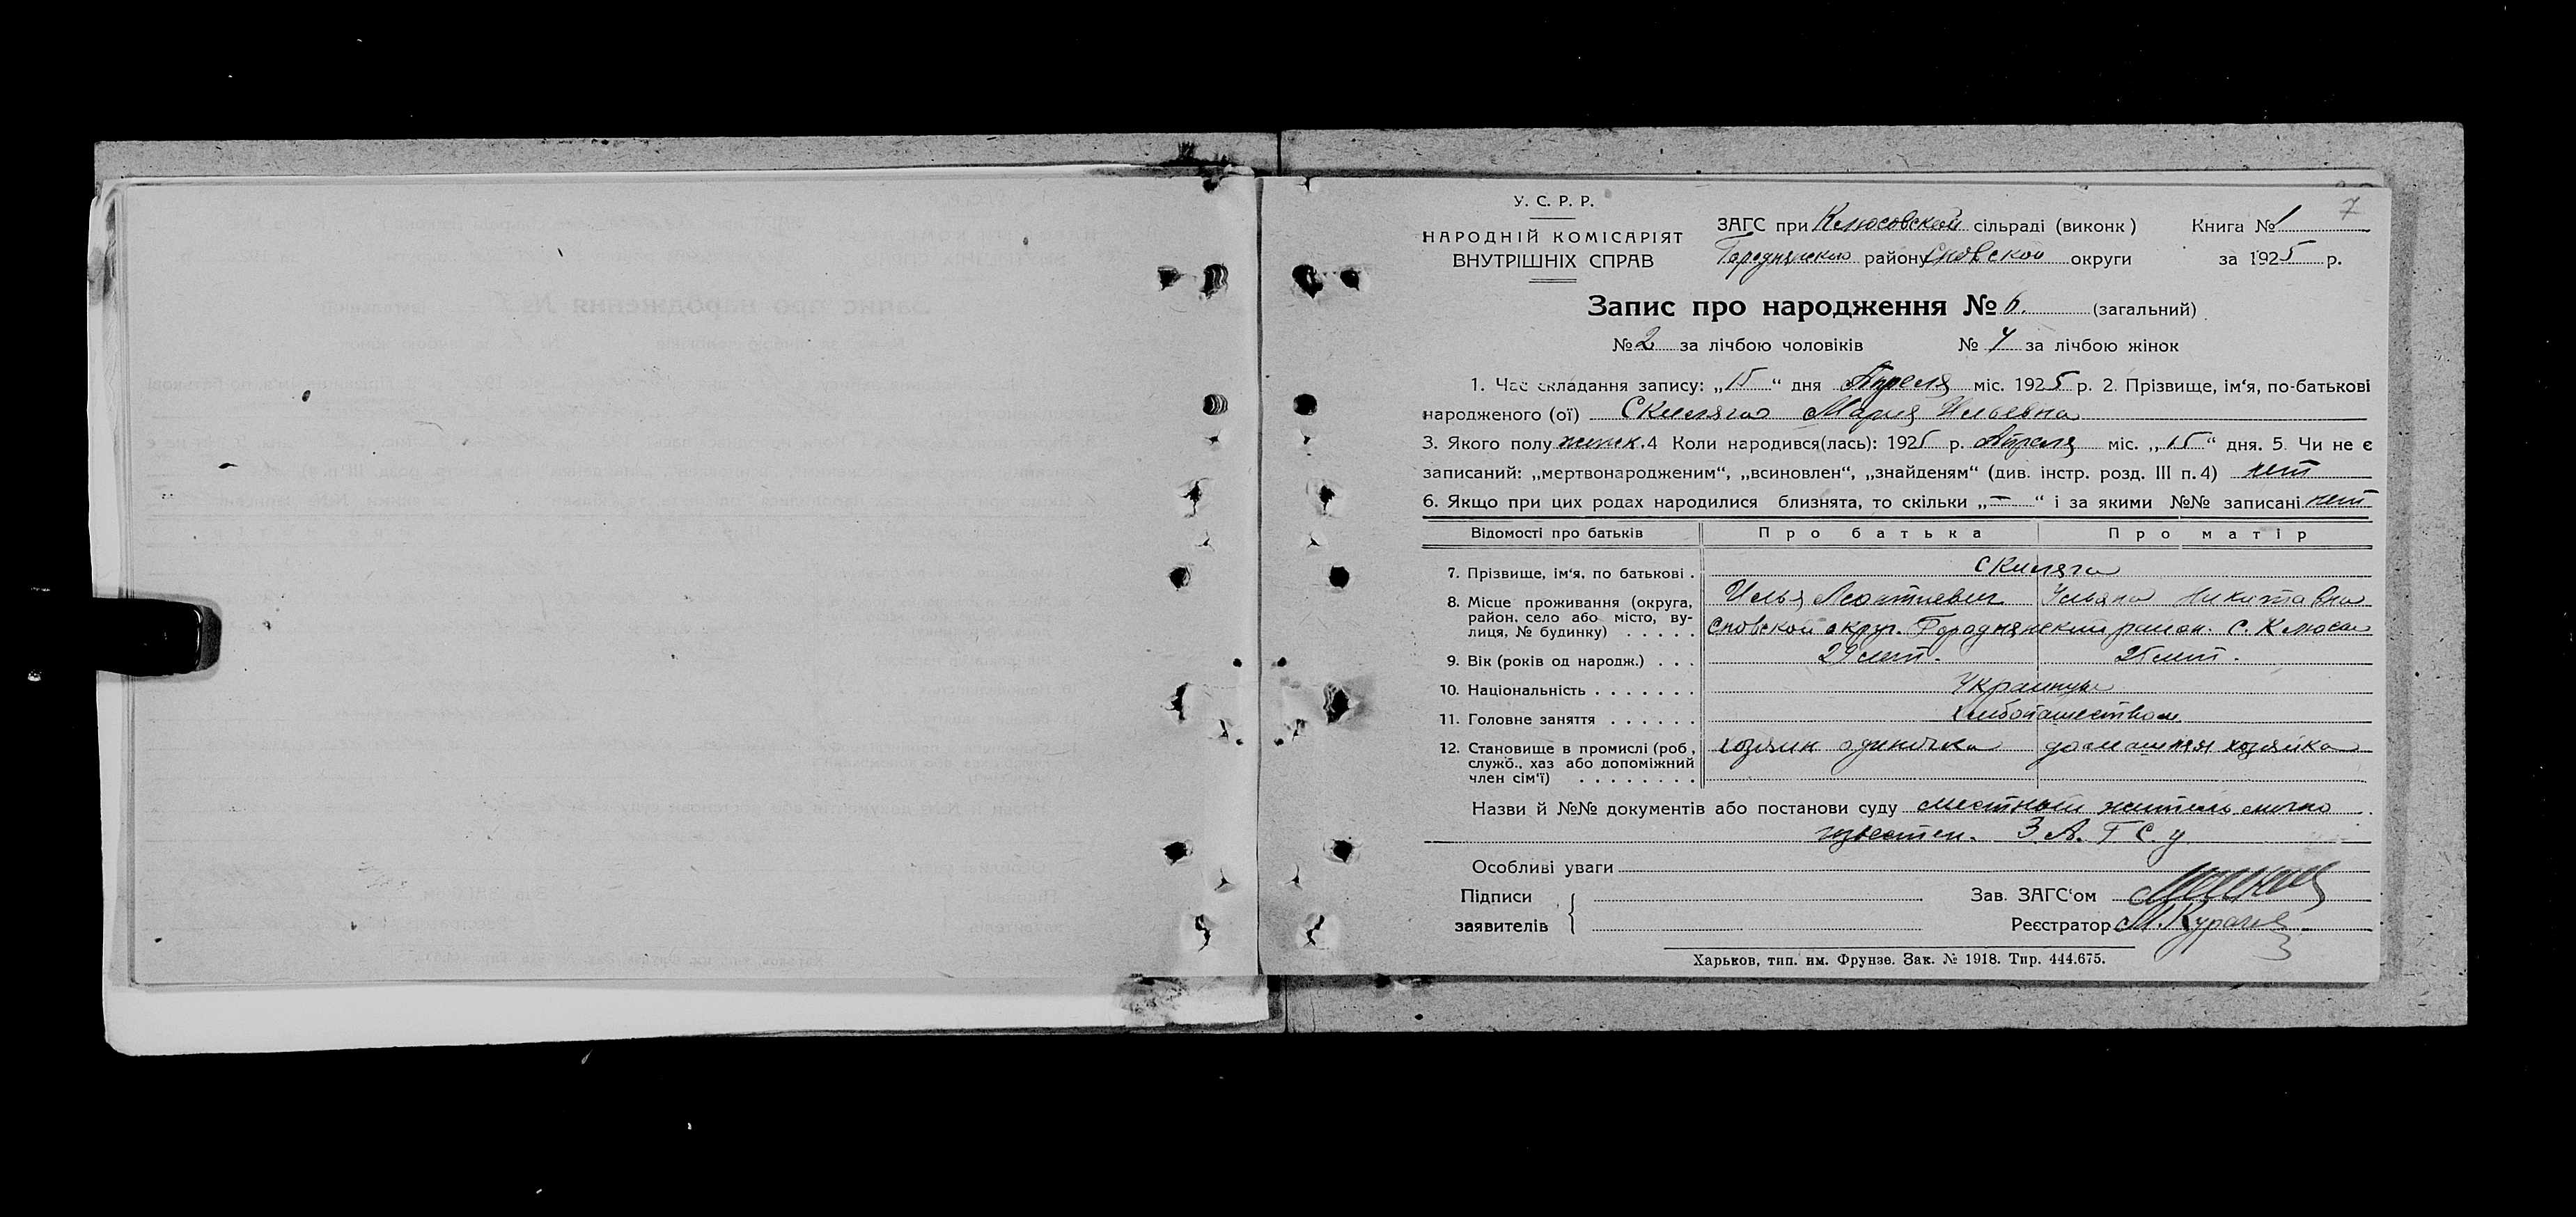 7
У. С. Р. Р.
НАРОДНІЙ КОМІСАРІЯТ
ВНУТРІШНІХ СПРАВ
ЗАГС при Клюсовской сільраді (виконк) Книга № 1
Городнянского району Сновской округи за 1925 р.
Запис про народження № 6. (загальний)
№ 2 за лічбою чоловіків № 4 за лічбою жінок
1. Час складання запису: „15“ дня Апреля міс. 1925 р. 2. Прізвище, ім‘я, по-батькові
народженого (ої) Скиляга Мария Ильевна
3. Якого полу женск. 4 Коли народився(лась): 1925 р. Апреля міс. „15“ дня. 5. Чи не є
записаний: „мертвонародженим“, „всиновлен“, „знайденям“ (див. інстр. розд. III п. 4) нет
6. Якщо при цих родах народилися близнята, то скільки „—“ і за якими №№ записані нет
Відомості про батьків Про батька Про матір
7. Прізвище, ім‘я, по батькові . Скиляга
Илья Леонтиевич Ульяна Никитовна
8. Місце проживання (округа, район, село або місто, вулиця, № будинку) . . . . . Сновской округ. Городнянский район. с. Клюсы
9. Вік (років од народж.) . . . 29 лет. 25 лет.
10. Національність . . . . . . . Украинцы
11. Головне заняття . . . . . . хлебопашеством
12. Становище в промислі (роб, служб., хаз або допоміжний член сім‘ї) . . . . . . . . хозяин одиночка домашняя хозяйка
Назви й №№ документів або постанови суду местный житель лично
известен. З.А.ГС.у
Особливі уваги
Підписи
заявителів
Зав. ЗАГС‘ом
Реєстратор М.
Харьков, тип. им. Фрунзе. Зак. № 1918. Тир. 444.675.